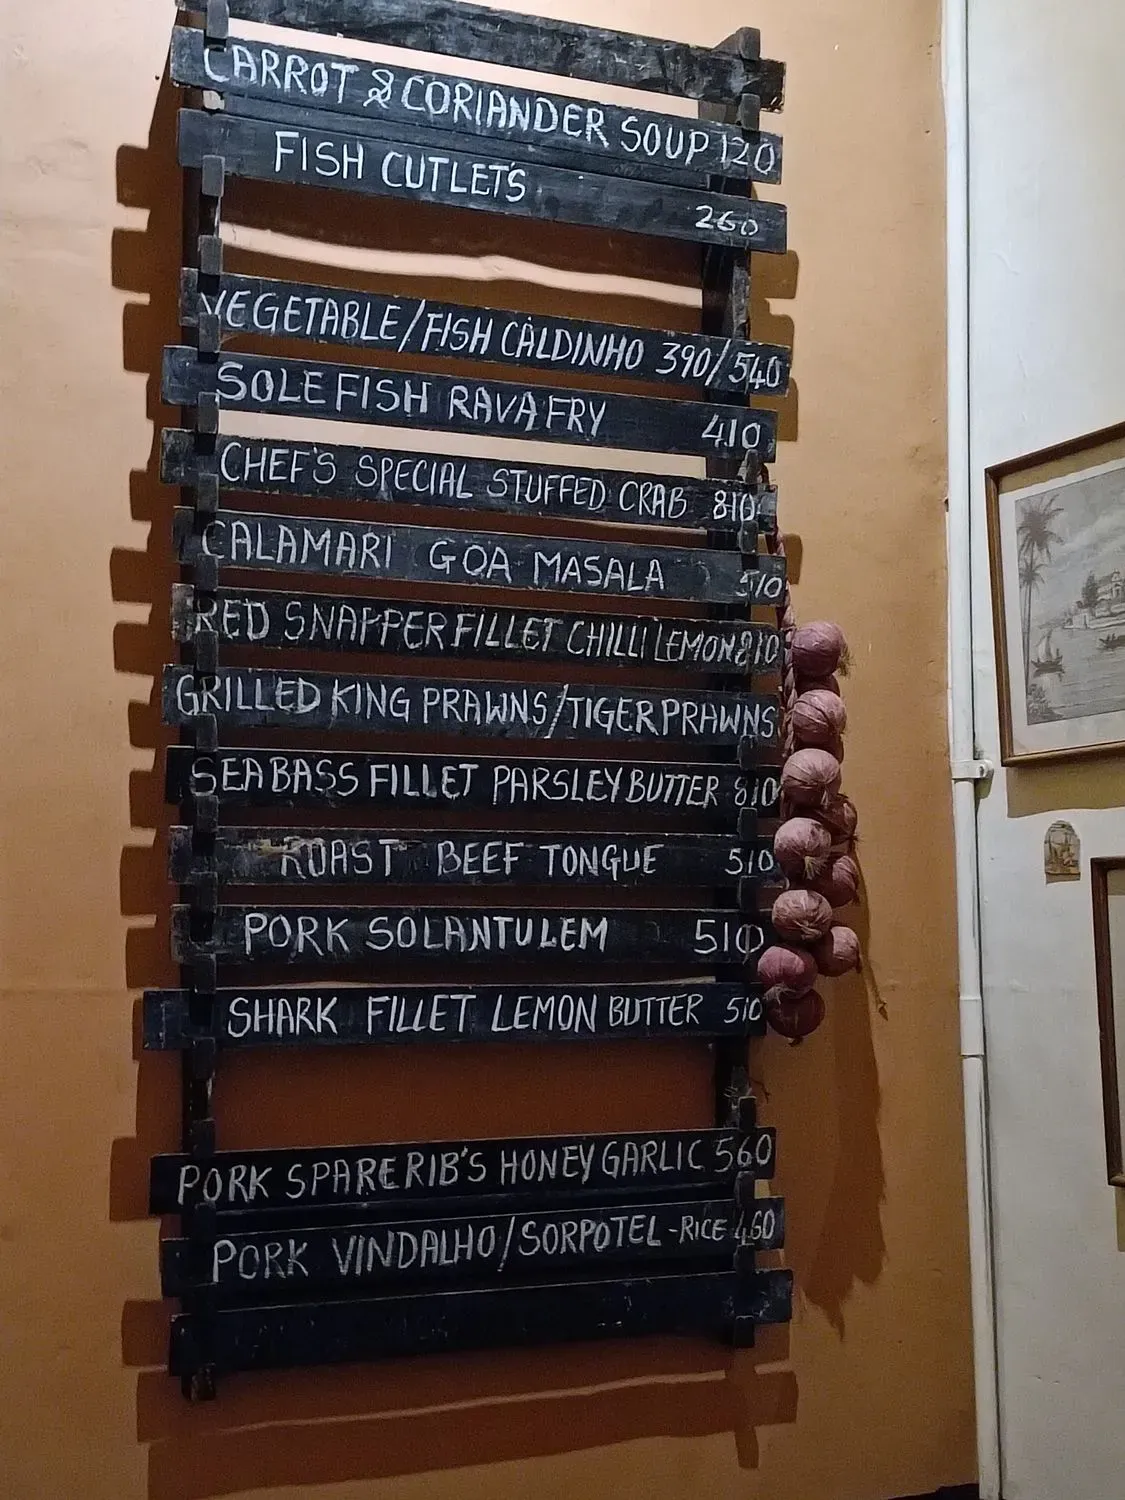 CARROT & CORIANDER SOUP 120
FISH CUTLET'S 260
VEGETABLE/FISH CALDINHO 390/540
SOLE FISH RAVA FRY 410
CHEF'S SPECIAL STUFFED CRAB 810
CALAMARI GOA MASALA 510
RED SNAPPER FILLET CHILLI LEMON 810
GRILLED KING PRAWNS/TIGER PRAWNS
SEA BASS FILLET PARSLEY BUTTER 810
ROAST BEEF TONGUE 510
PORK SOLANTULEM 510
SHARK FILLET LEMON BUTTER 510
PORK SPARE RIB'S HONEY GARLIC 560
PORK VINDALHO/SORPOTEL-RICE 460